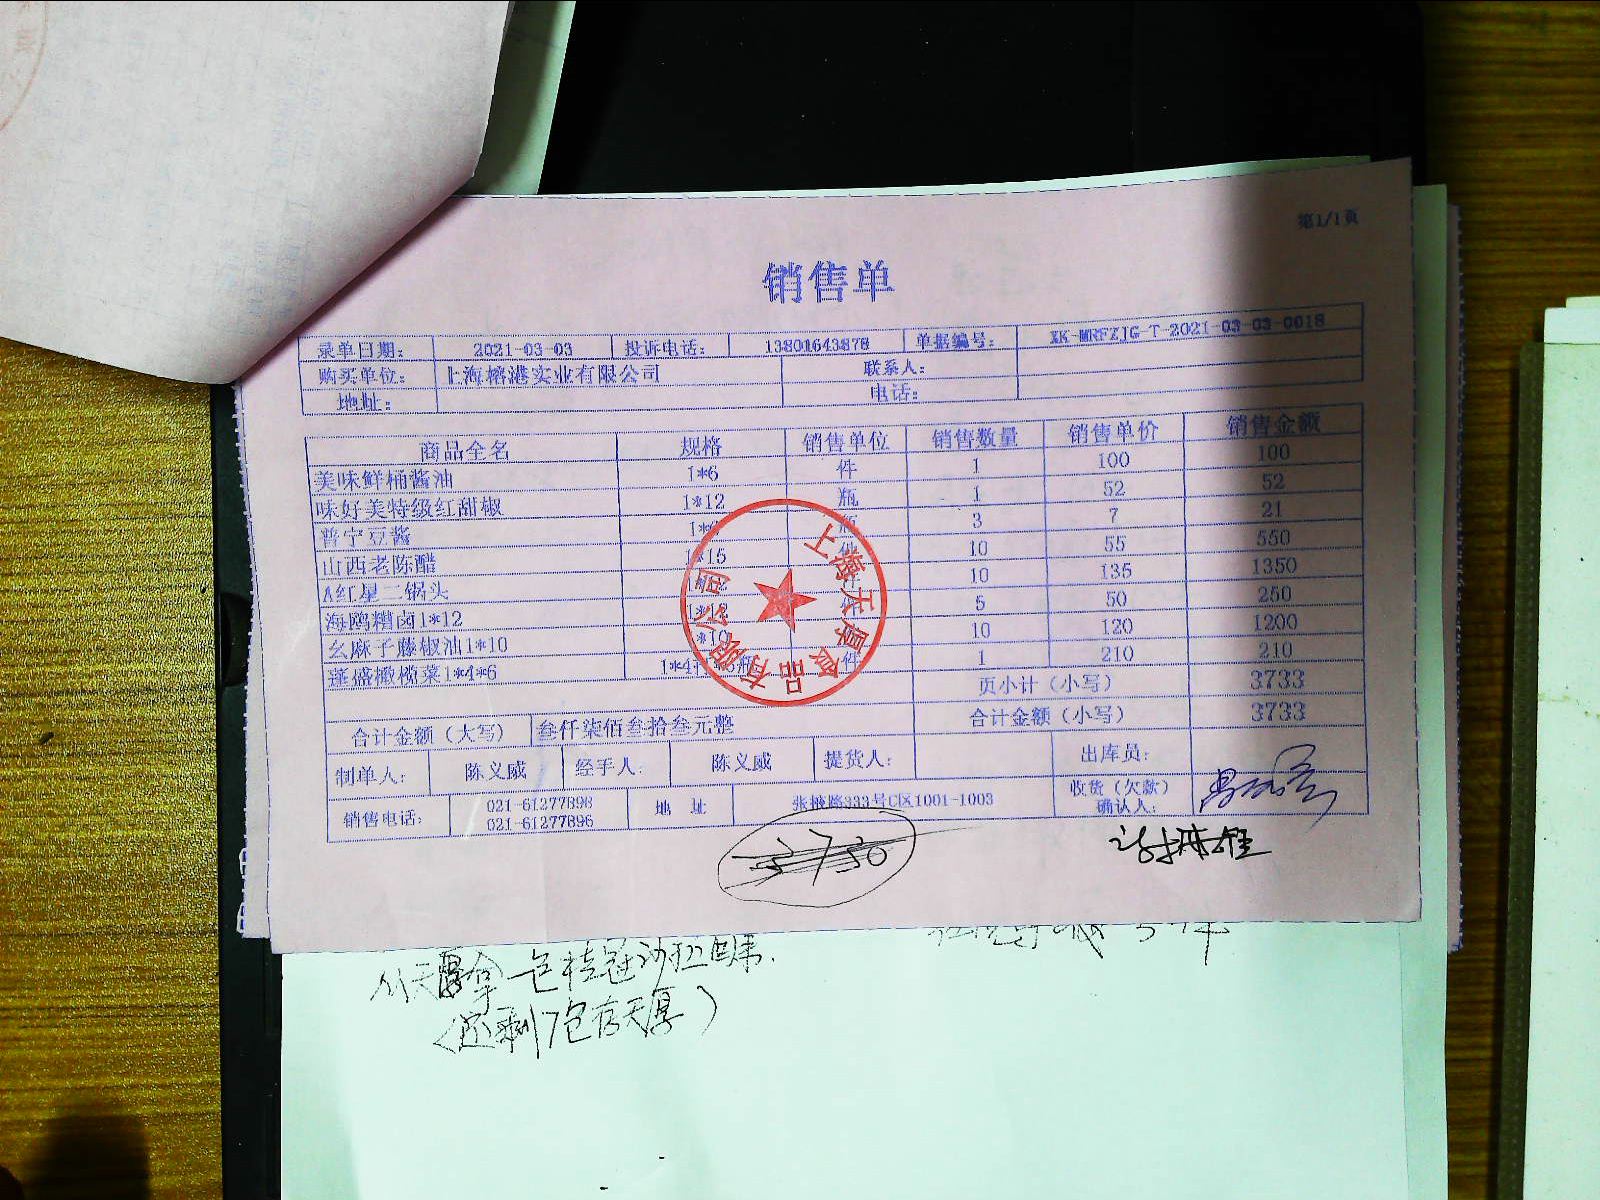 第1/1页
销售单
录单日期： 2021-03-03 投诉电话： 13801643878 单据编号： XK-MRFZJG-T-2021-03-03-0018
购买单位： 上海榕港实业有限公司 联系人：
地址： 电话：
商品全名 规格 销售单位 销售数量 销售单价 销售金额
美味鲜桶酱油 1*6 件 1 100 100
味好美特级红甜椒 1*12 瓶 1 52 52
普宁豆酱 3 7 21
山西老陈醋 1*15 件 10 55 550
A红星二锅头 件 10 135 1350
海鸥糟卤1*12 1*12 件 5 50 250
幺麻子藤椒油1*10 *10 10 120 1200
蓬盛橄榄菜1*4*6 件 1 210 210
页小计（小写） 3733
合计金额（大写） 叁仟柒佰叁拾叁元整 合计金额（小写） 3733
制单人： 陈义威 经手人： 陈义威 提货人： 出库员：
销售电话： 021-61277898 021-61277896 地 址 张掖路333号C区1001-1003 收货（欠款）确认人：
上海天厚食品有限公司
3730
从天厚拿一包桂冠沙
（还剩7包存天厚）